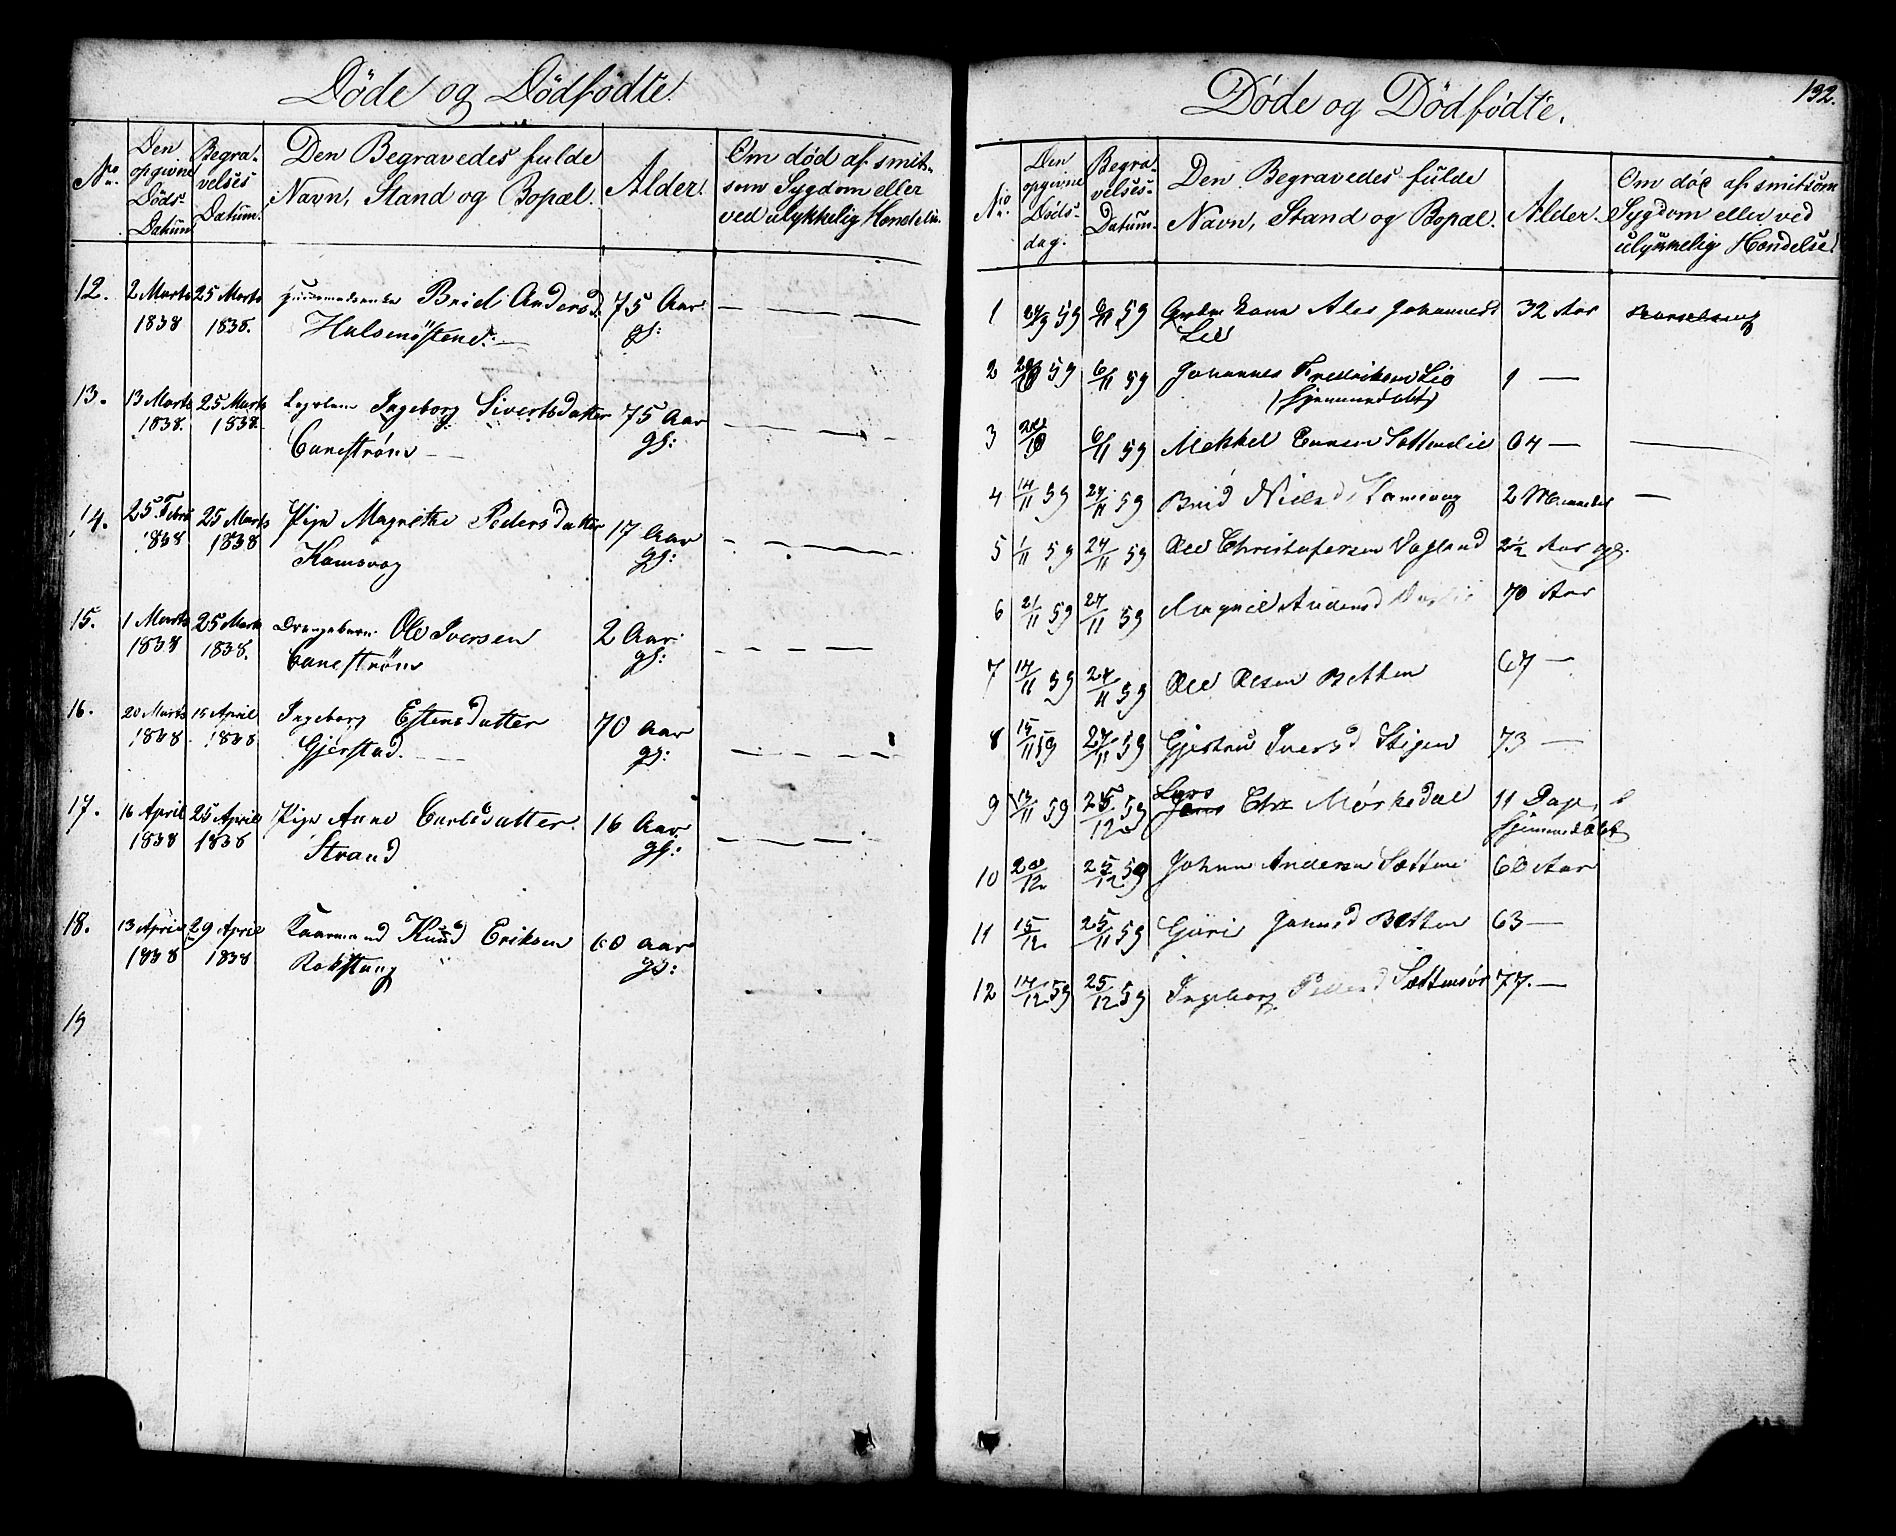 Døde og Dødfødte.
No.
Den opgivne Døds Datum
Begravelses Datum.
Den Begravedes fulde Navn, Stand og Bopæl.
Alder.
Om død af smitsom Sygdom eller ved ulykkelig Hændelse
12. 2 Marts 1838 25 Marts 1838. Brit Andersd: 75 Aar
gl:
13. 13 Marts 1838. 25 Marts 1838 Ingeborg Sivertsdatter 75 Aar
gl:
14. 25 Febr 1838 25 Marts 1838 Pige Magrethe Pedersdatter 17 Aar
Hamsvog gl:
15. 1 Marts 1838 25 Marts 1838. Drengebarn Ole Iversen 2 Aar
gl:
16. 20 Marts 1838 15 April 1838 Ingeborg Estensdatter 70 Aar
Gjerstad. gl:
17. 16 April 1838 25 April 1838 Pige Anne Carlsdatter 16 Aar
Strand gl:
18. 13 April 1838 29 April 1838 Kaarmand Knud Eriksen 60 aar
gl:
19
132.
Døde og Dødfødte.
No.
Den opgivne Døds-dag.
Begravelses-Datum.
Den Begravedes fulde Navn, Stand og Bopæl.
Alder.
Om død af smitsom Sygdom eller ved ulykkelig Hændelse
1 59 6/11 59 Kone Ales Johannesd 32 Aar
Lie
2 59 6/11 59 Johannes Fredriksen Lie 1 —
(hjemmedøbt)
3 6/11 59 Mekkel 64 — —
4 14/11 59 24/11 59 Brid Nielsd Hamsvog 2 Maaneder —
5 1/11 59 24/11 59 Ole Christofersen Vagland 2½ Aar gl.
6 21/11 59 24/11 59 Magnil Andersd 70 Aar
7 14/11 59 24/11 59 Ole Olsen Botten 67 —
8 15/11 59 24/11 59 Gjertru Iversd Stigen 73 —
9 13/11 59 25/12 59 Lars Chr Mørkedal 11 Dage,
hjemmedøbt
10 20/12 25/12 59 Johan Andersen Sætten 60 Aar
11 15/12 25/11 59 Guri Johnsd Botten 63 —
12 14/12 59 25/12 59 Ingeborg Sættensør 77. —